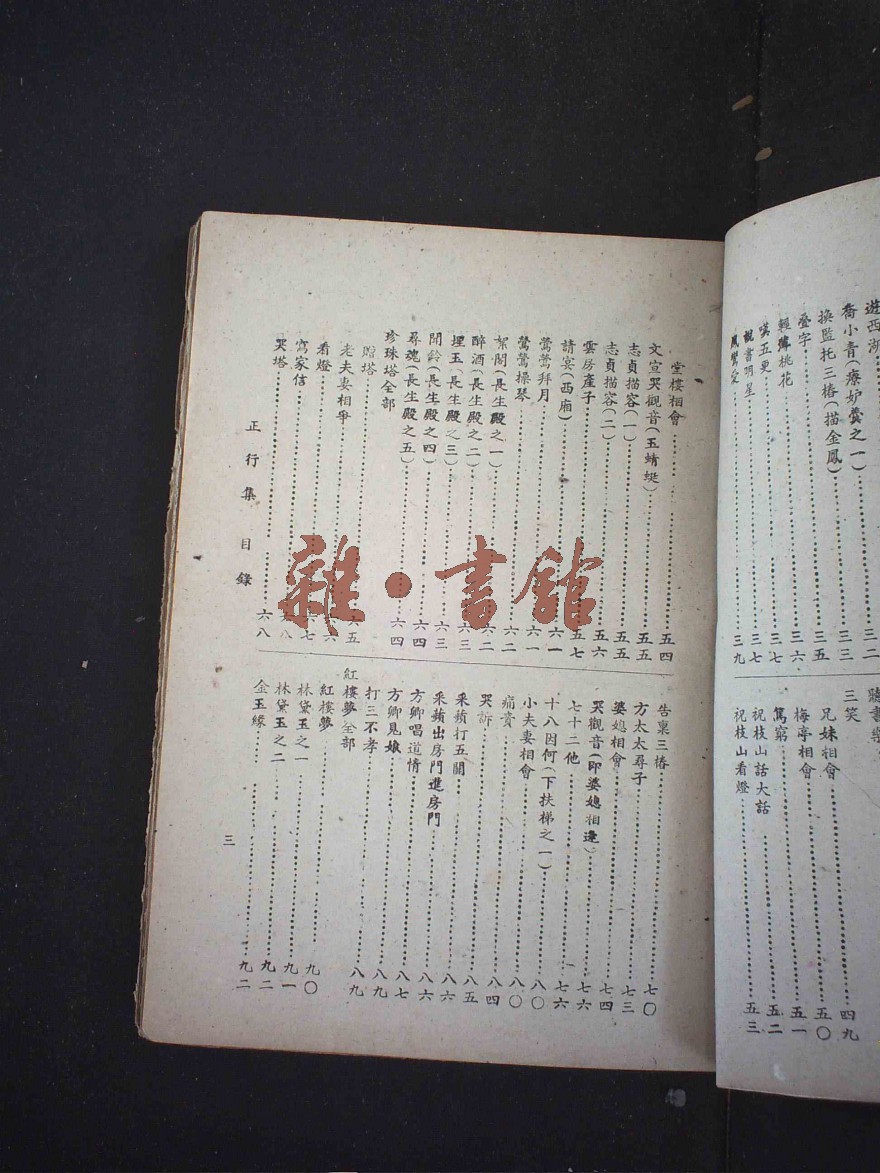 遊西湖……三二
喬小青(療妒羹之一)……三三
換監托三樁(描金鳳)……三五
疊字……三六
輕薄桃花……三七
嘆五更……三七
說書明星……三九
三笑
兄妹相會……四九
梅亭相會……五〇
罵窮……五一
祝枝山話大話……五二
祝枝山看燈……五三
堂樓相會……五四
文宣哭觀音(玉蜻蜓)……五五
志貞描容(一)……五五
志貞描容(二)……五六
雲房產子……五七
請宴(西廂)……六一
鶯鶯拜月……六一
鶯鶯操琴……六二
絮閣(長生殿之一)……六二
醉酒(長生殿之二)……六三
埋玉(長生殿之三)……六三
聞鈴(長生殿之四)……六四
尋魂(長生殿之五)……六四
珍珠塔全部
贈塔……六五
老夫妻相爭……六六
看燈……六七
寫家信……六八
哭塔……六八
告稟三樁……七〇
方太太尋子……七三
婆媳相會……七四
哭觀音(即婆媳相逢)……七六
七十二他……七六
十八因何(下扶梯之一)……八〇
小夫妻相會……八〇
痛責……八四
哭訴……八五
采蘋打五關……八六
采蘋出房門進房門……八六
方卿唱道情……八七
方卿見娘……八九
打三不孝……八九
紅樓夢全部
紅樓夢……九〇
林黛玉之一……九一
林黛玉之二……九二
金玉緣……九二
正行集 目錄
三
雜·書館